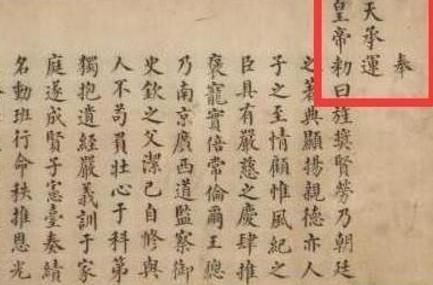 奉
天承運
皇帝勑曰旌奬賢勞乃朝廷
之著典顯揚親德亦人
子之至情顧惟風紀之
臣具有嚴慈之慶肆推
褒寵實倍常倫爾王聰
乃南京廣西道監察御
史欽之父潔己自脩與
人不苟負壯心于科第
獨抱遺經嚴義訓于家
庭遂成賢子憲臺奏績
名動班行命秩推恩光